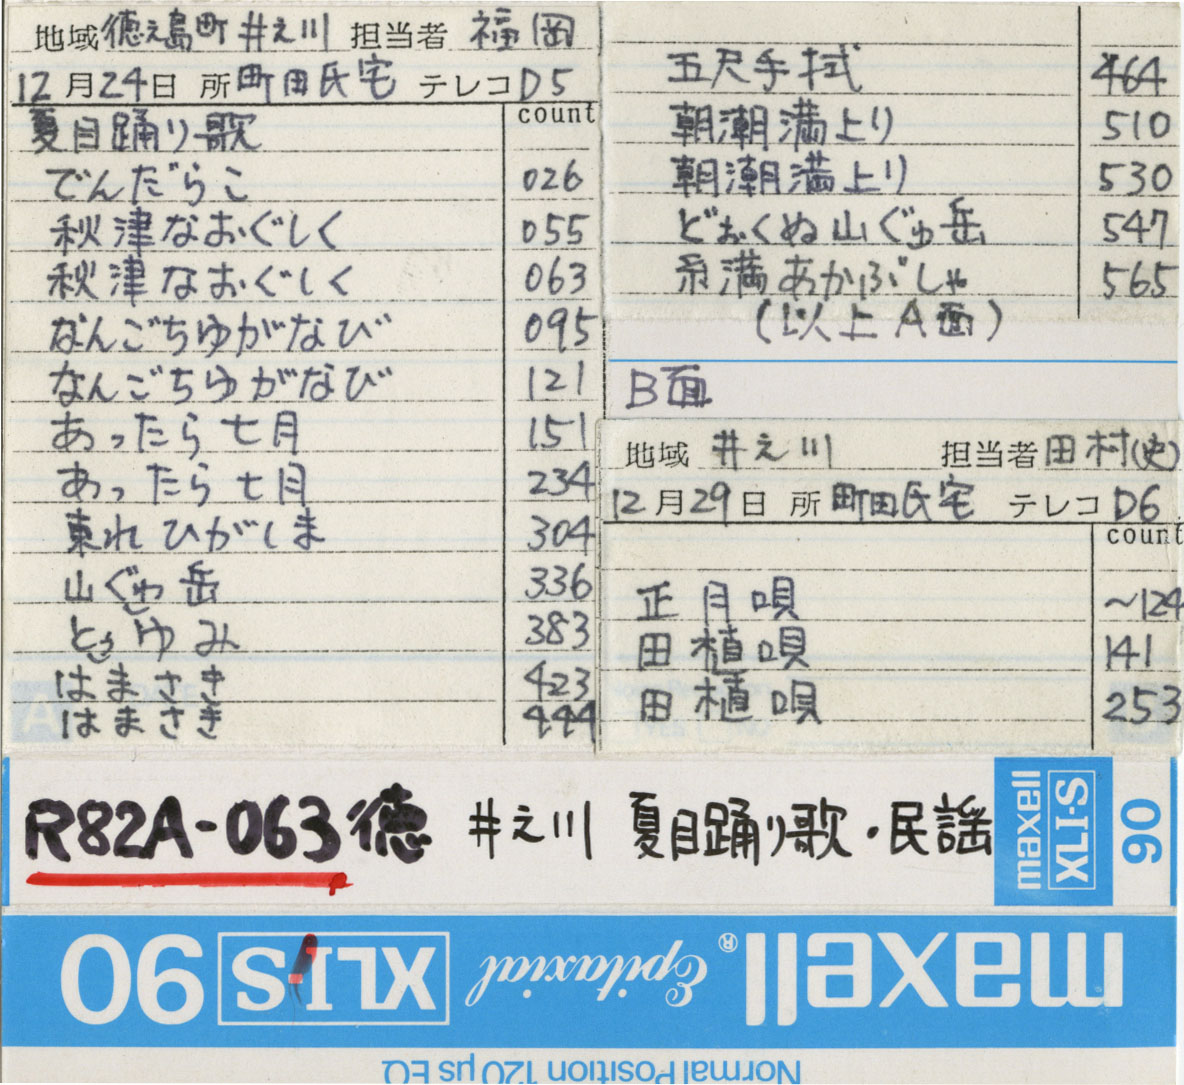 地域 徳之島町 井之川 担当者 福岡
12月24日 所 町田氏宅 テレコ D5
count
夏目踊り歌
でんだらこ 026
秋津なおぐしく 055
秋津なおぐしく 063
なんごちゆがなび 095
なんごちゆがなび 121
あったら七月 151
あったら七月 234
東れひがしま 304
山ぐゎ岳 336
とぅゆみ 383
はまさき 423
はまさき 444
五尺手拭 464
朝潮満上り 510
朝潮満上り 530
どぉくぬ山ぐゎ岳 547
糸満あかぶしゃ 565
(以上A面)
B面
地域 井之川 担当者 田村(史)
12月29日 所 町田氏宅 テレコ D6
count
正月唄 ~124
田植唄 141
田植唄 253
R82A-063 徳 井之川 夏目踊り歌・民謡
maxell XLI-S 90
maxell® Epitaxial XLI-S 90
Normal Position 120μs EQ